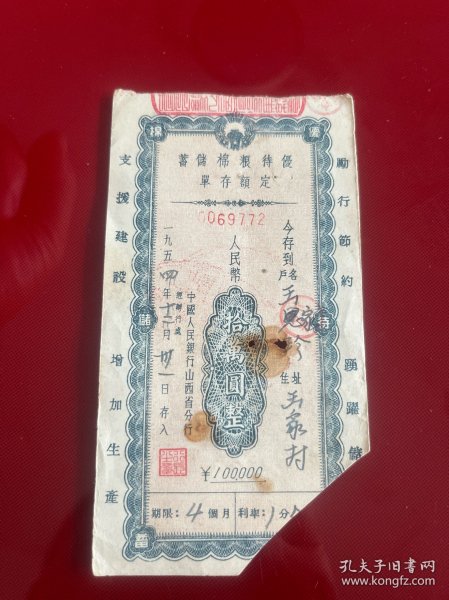 優待棉糧儲蓄
定額存單
0069772
勵行節約
踴躍儲
今存到
戶名
住址 王家村
人民幣
拾萬圓整
¥100000
中國人民銀行山西省分行
一九五四年十二月廿一日存入
支援建設
增加生產
優
待
儲
蓄
期限：4個月
利率：1分
孔夫子旧书网
www.kongfz.com